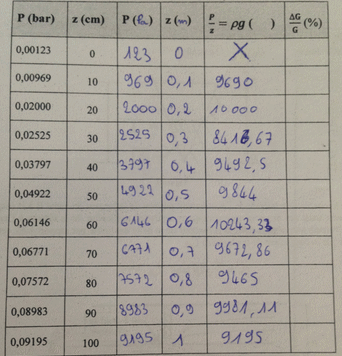 P (bar) z (cm) P (Pa) z (m) P/z = ρg ( ) ΔG/G (%)
0,00123 0 123 0 X
0,00969 10 969 0,1 9690
0,02000 20 2000 0,2 10000
0,02525 30 2525 0,3 8416,67
0,03797 40 3797 0,4 9492,5
0,04922 50 4922 0,5 9844
0,06146 60 6146 0,6 10243,33
0,06771 70 6771 0,7 9672,86
0,07572 80 7572 0,8 9465
0,08983 90 8983 0,9 9981,11
0,09195 100 9195 1 9195